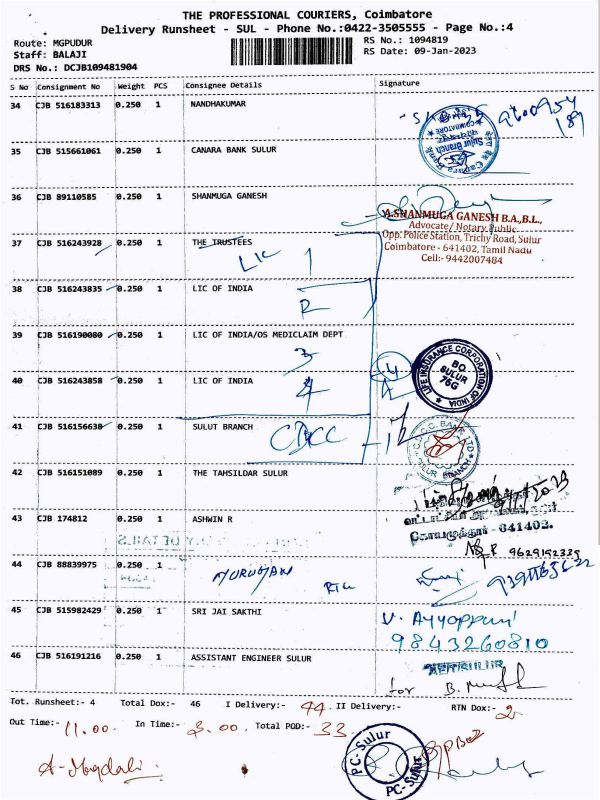 THE PROFESSIONAL COURIERS, Coimbatore
Delivery Runsheet - SUL - Phone No.:0422-3505555 - Page No.:4
Route: MGPUDUR
RS No.: 1094819
Staff: BALAJI
RS Date: 09-Jan-2023
DRS No.: DCJB109481904
S No Consignment No Weight PCS Consignee Details Signature
34 CJB 516183313 0.250 1 NANDHAKUMAR
35 CJB 515661061 0.250 1 CANARA BANK SULUR
Sulur Branch
COIMBATORE
36 CJB 89110585 0.250 1 SHANMUGA GANESH
A.SHANMUGA GANESH B.A.,B.L.,
Advocate/ Notary Public
Opp. Police Station, Trichy Road, Sulur
Coimbatore - 641402, Tamil Nadu
Cell:- 9442007484
37 CJB 516243928 0.250 1 THE TRUSTEES
LIC 1
38 CJB 516243835 0.250 1 LIC OF INDIA
2
39 CJB 516190080 0.250 1 LIC OF INDIA/OS MEDICLAIM DEPT
3
40 CJB 516243858 0.250 1 LIC OF INDIA
4
4
LIFE INSURANCE CORPORATION OF INDIA
BO.
SULUR
76G
41 CJB 516156638 0.250 1 SULUT BRANCH
SULUR BRANCH
42 CJB 516151089 0.250 1 THE TAHSILDAR SULUR
43 CJB 174812 0.250 1 ASHWIN R
641402.
9629192339
44 CJB 88839975 0.250 1 MURUGAN
45 CJB 515982429 0.250 1 SRI JAI SAKTHI
V. Ayyoppan
9843260810
46 CJB 516191216 0.250 1 ASSISTANT ENGINEER SULUR
for
Tot. Runsheet:- 4 Total Dox:- 46 I Delivery:- 44 II Delivery:- RTN Dox:- 2
Out Time:- 11.00. In Time:- 3.00. Total POD:- 33
PC-Sulur
PC-Sulur